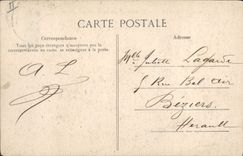 CARTE POSTALE
Correspondance
Tous les pays étrangers n'acceptent pas la
correspondance au recto, se renseigner à la poste.
A. L
Adresse
Mlle Juliette Lagarde
5 Rue Bel Air
Béziers
Herault